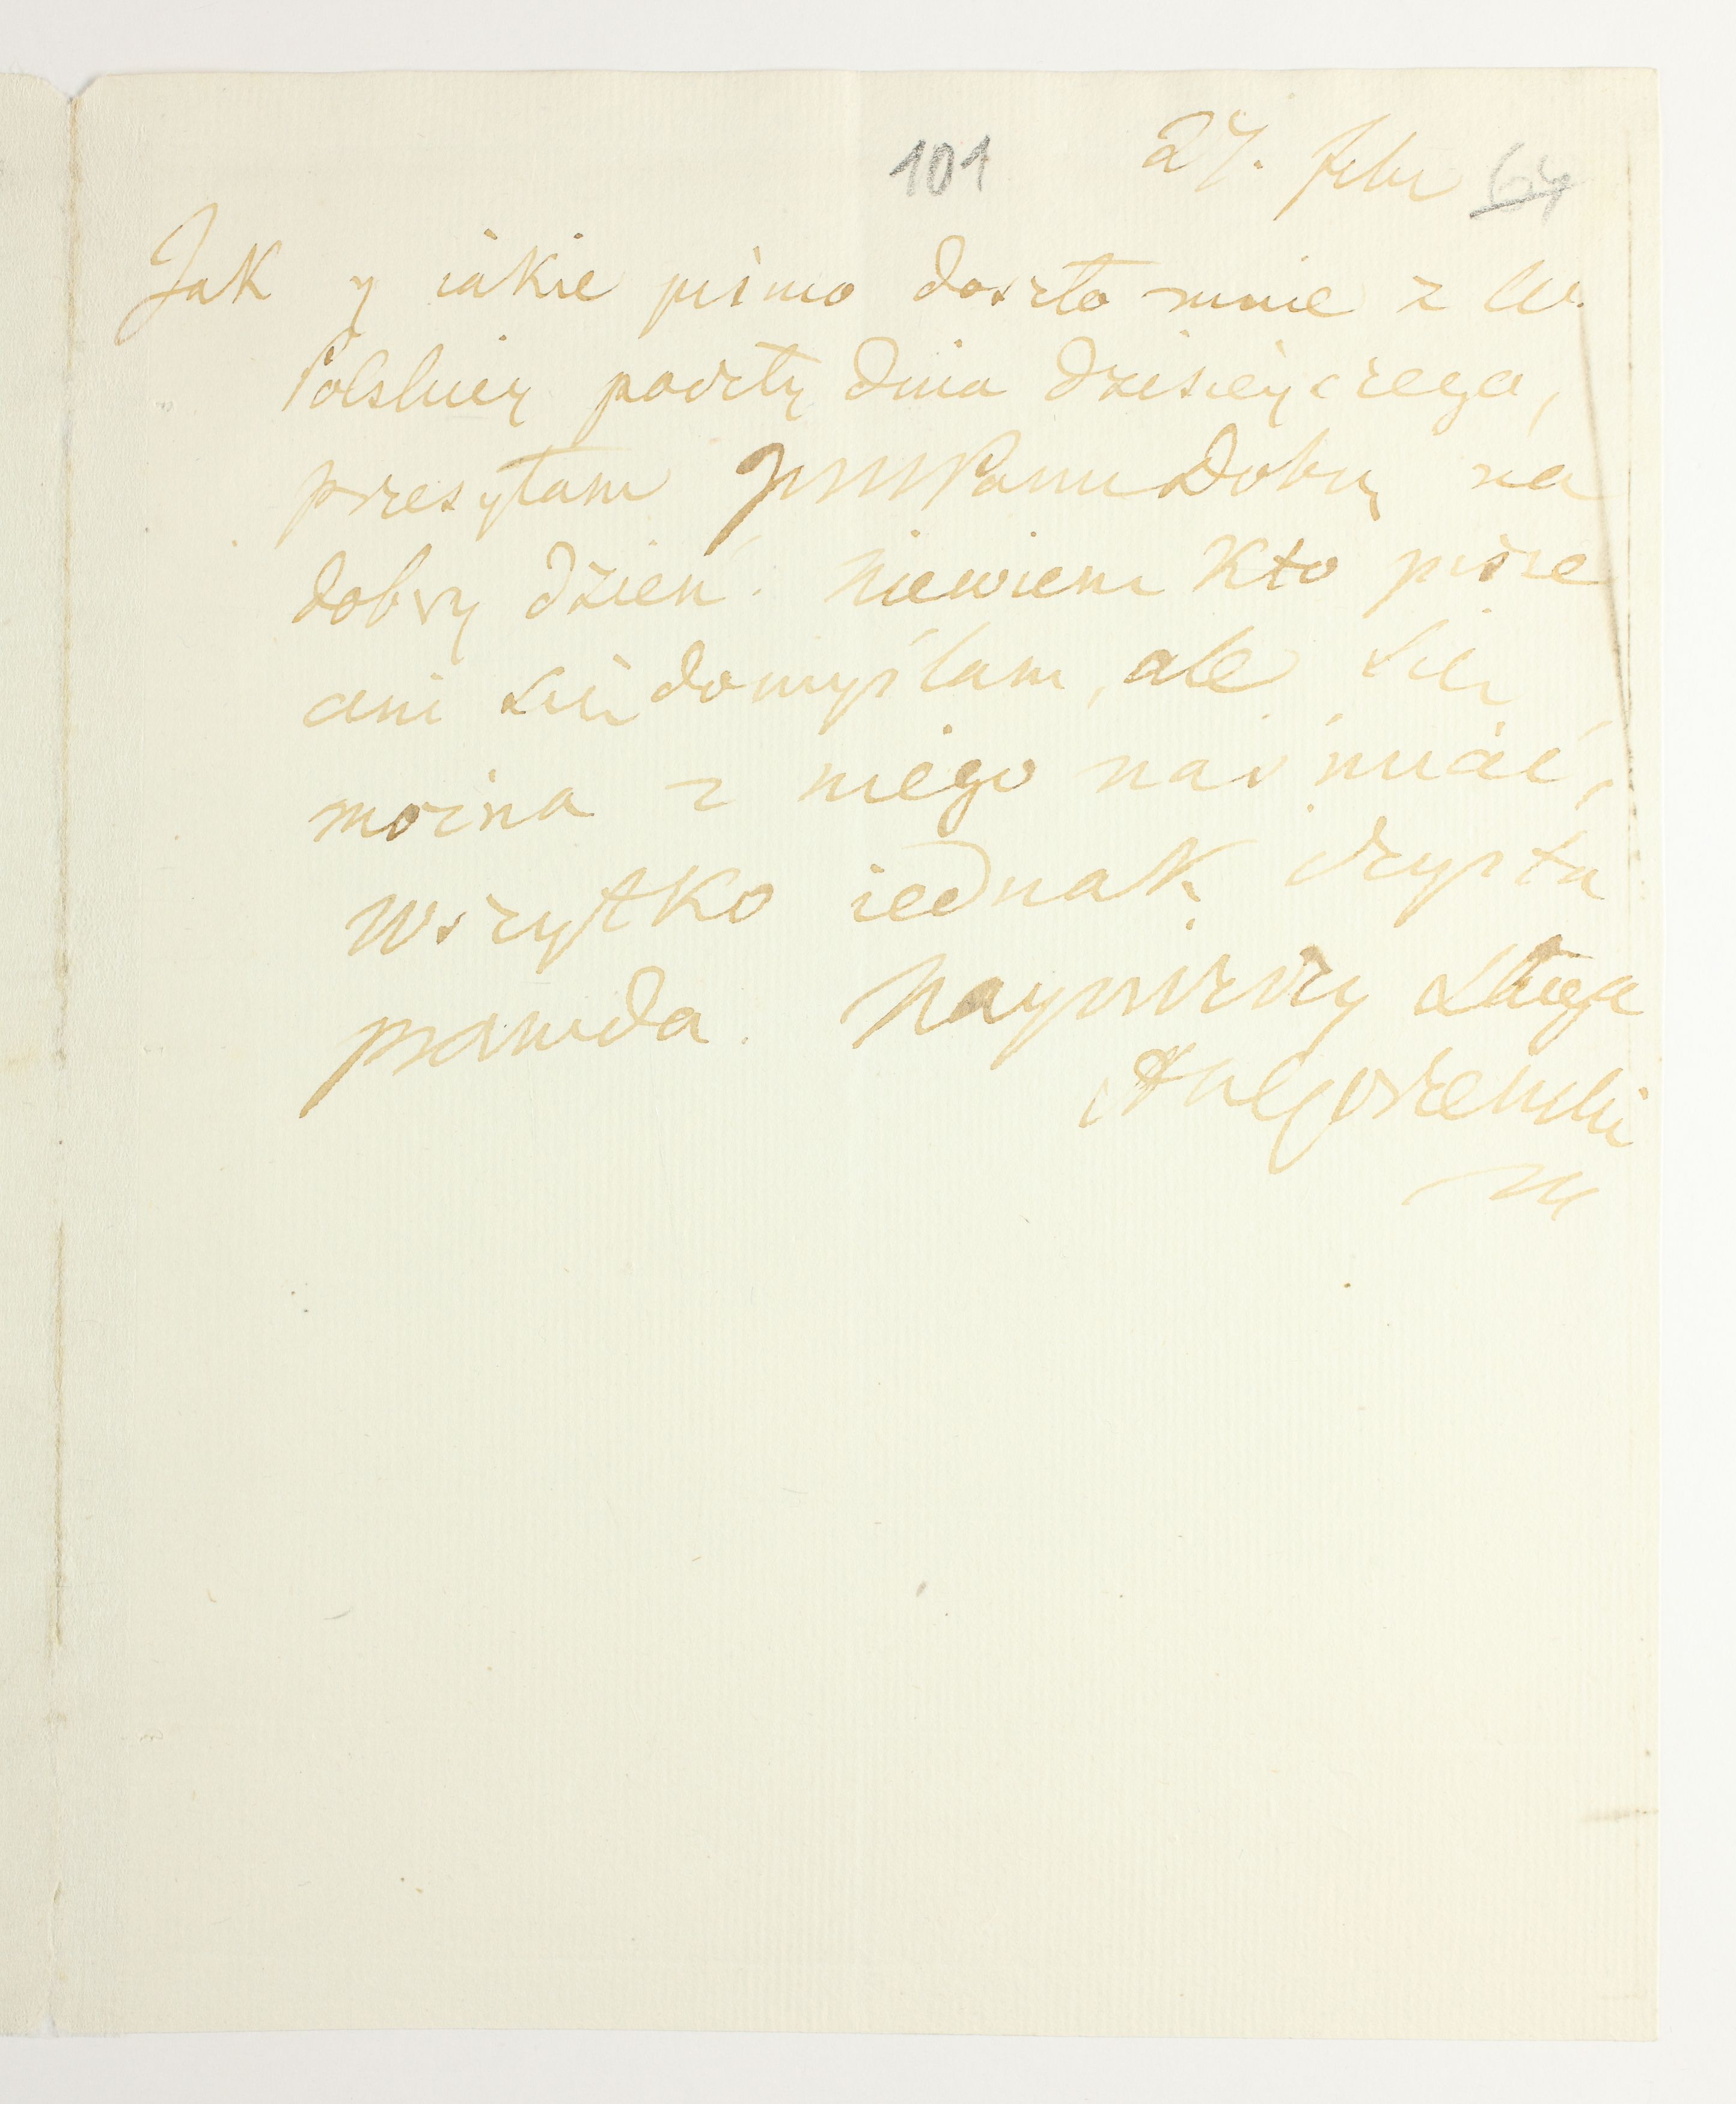 101 27. febr 64
Jak y iakie pismo doszło mnie z W.
Polskiey poczty dnia dzisieyszego,
przesyłam JMMPanu Dobrz na
dobry dzień. Niewiem Kto pisze
ani się domyślam, ale się
można z niego naśmiać,
wszytko iednak czysta
prawda. Nayniższy Sługa